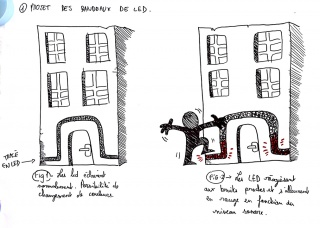 ① PROJET DES BANDEAUX DE LED.
TRACÉ
EN LED
Fig 1 Les led éclairent
normalement. Possibilité de
changement de couleur
Fig 2 → Les LED réagissent
aux bruits proches et s'allument
en rouge en fonction du
niveau sonore.